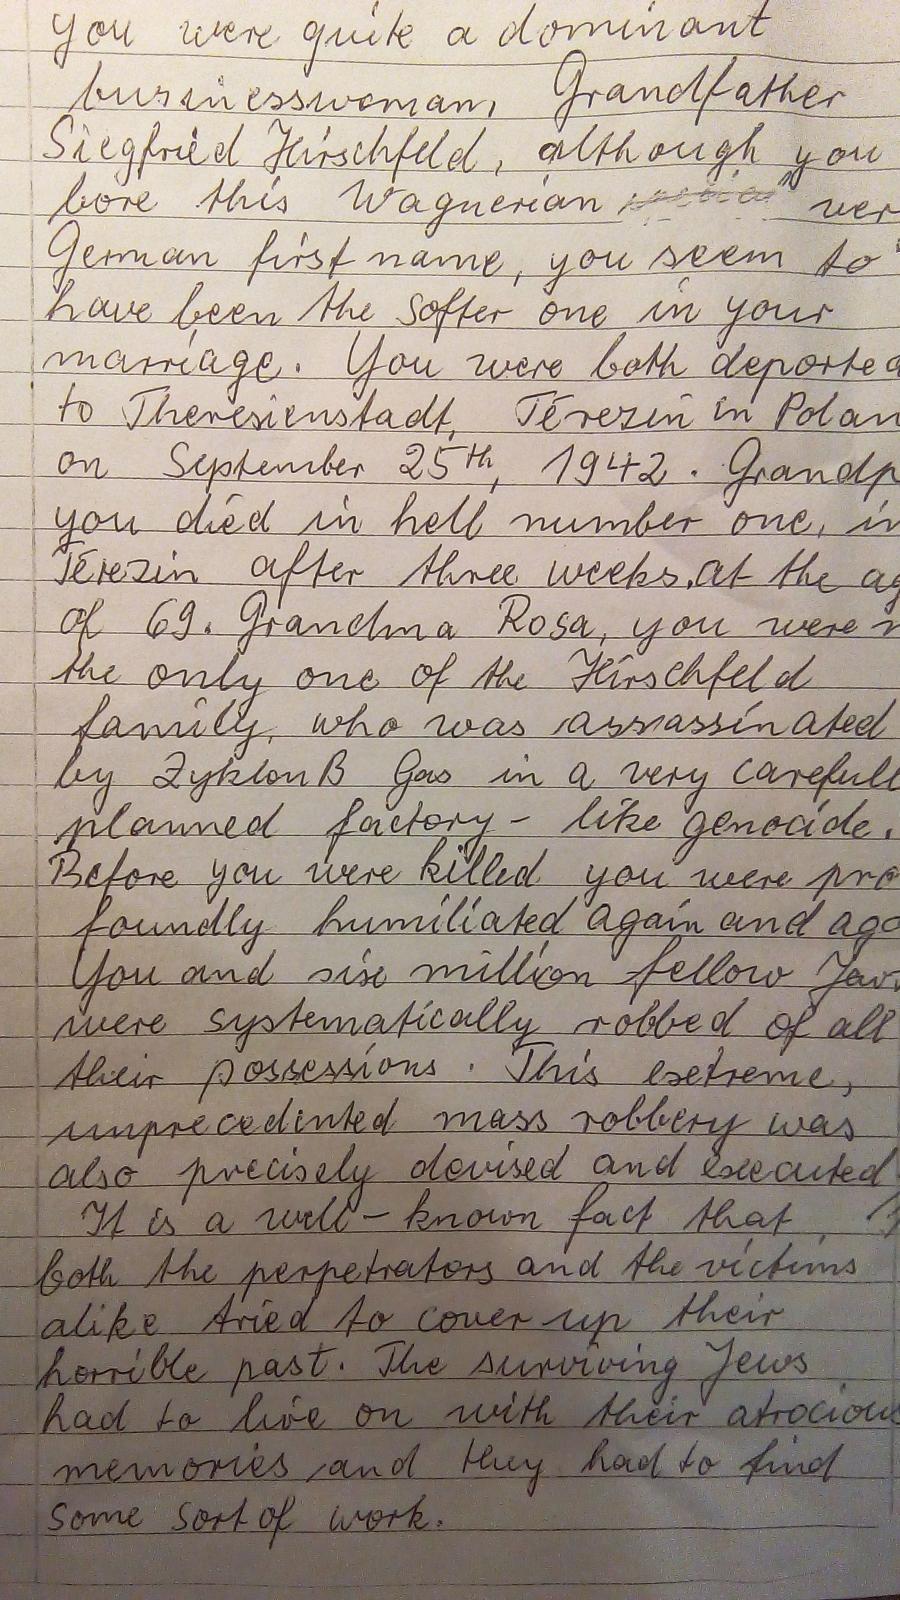 you were quite a dominant
businesswoman, Grandfather
Siegfried Hirschfeld, although you
bore this Wagnerian " ver
German first name, you seem to
have been the softer one in your
marriage. You were both deported
to Theresienstadt, Térezin in Polan
on September 25th, 1942. Grandp
you died in hell number one, in
Térezin after three weeks, at the ag
of 69. Grandma Rosa, you were n
the only one of the Hirschfeld
family, who was assassinated
by Zyklon B Gas in a very carefull
planned factory - like genocide.
Before you were killed you were pro
foundly humiliated again and aga
You and six million fellow Jews
were systematically robbed of all
their possessions. This extreme,
unprecedinted mass robbery was
also precisely devised and executed
It is a well - known fact that
both the perpetrators and the victims
alike tried to cover up their
horrible past. The surviving Jews
had to live on with their atrocious
memories, and they had to find
some sort of work.